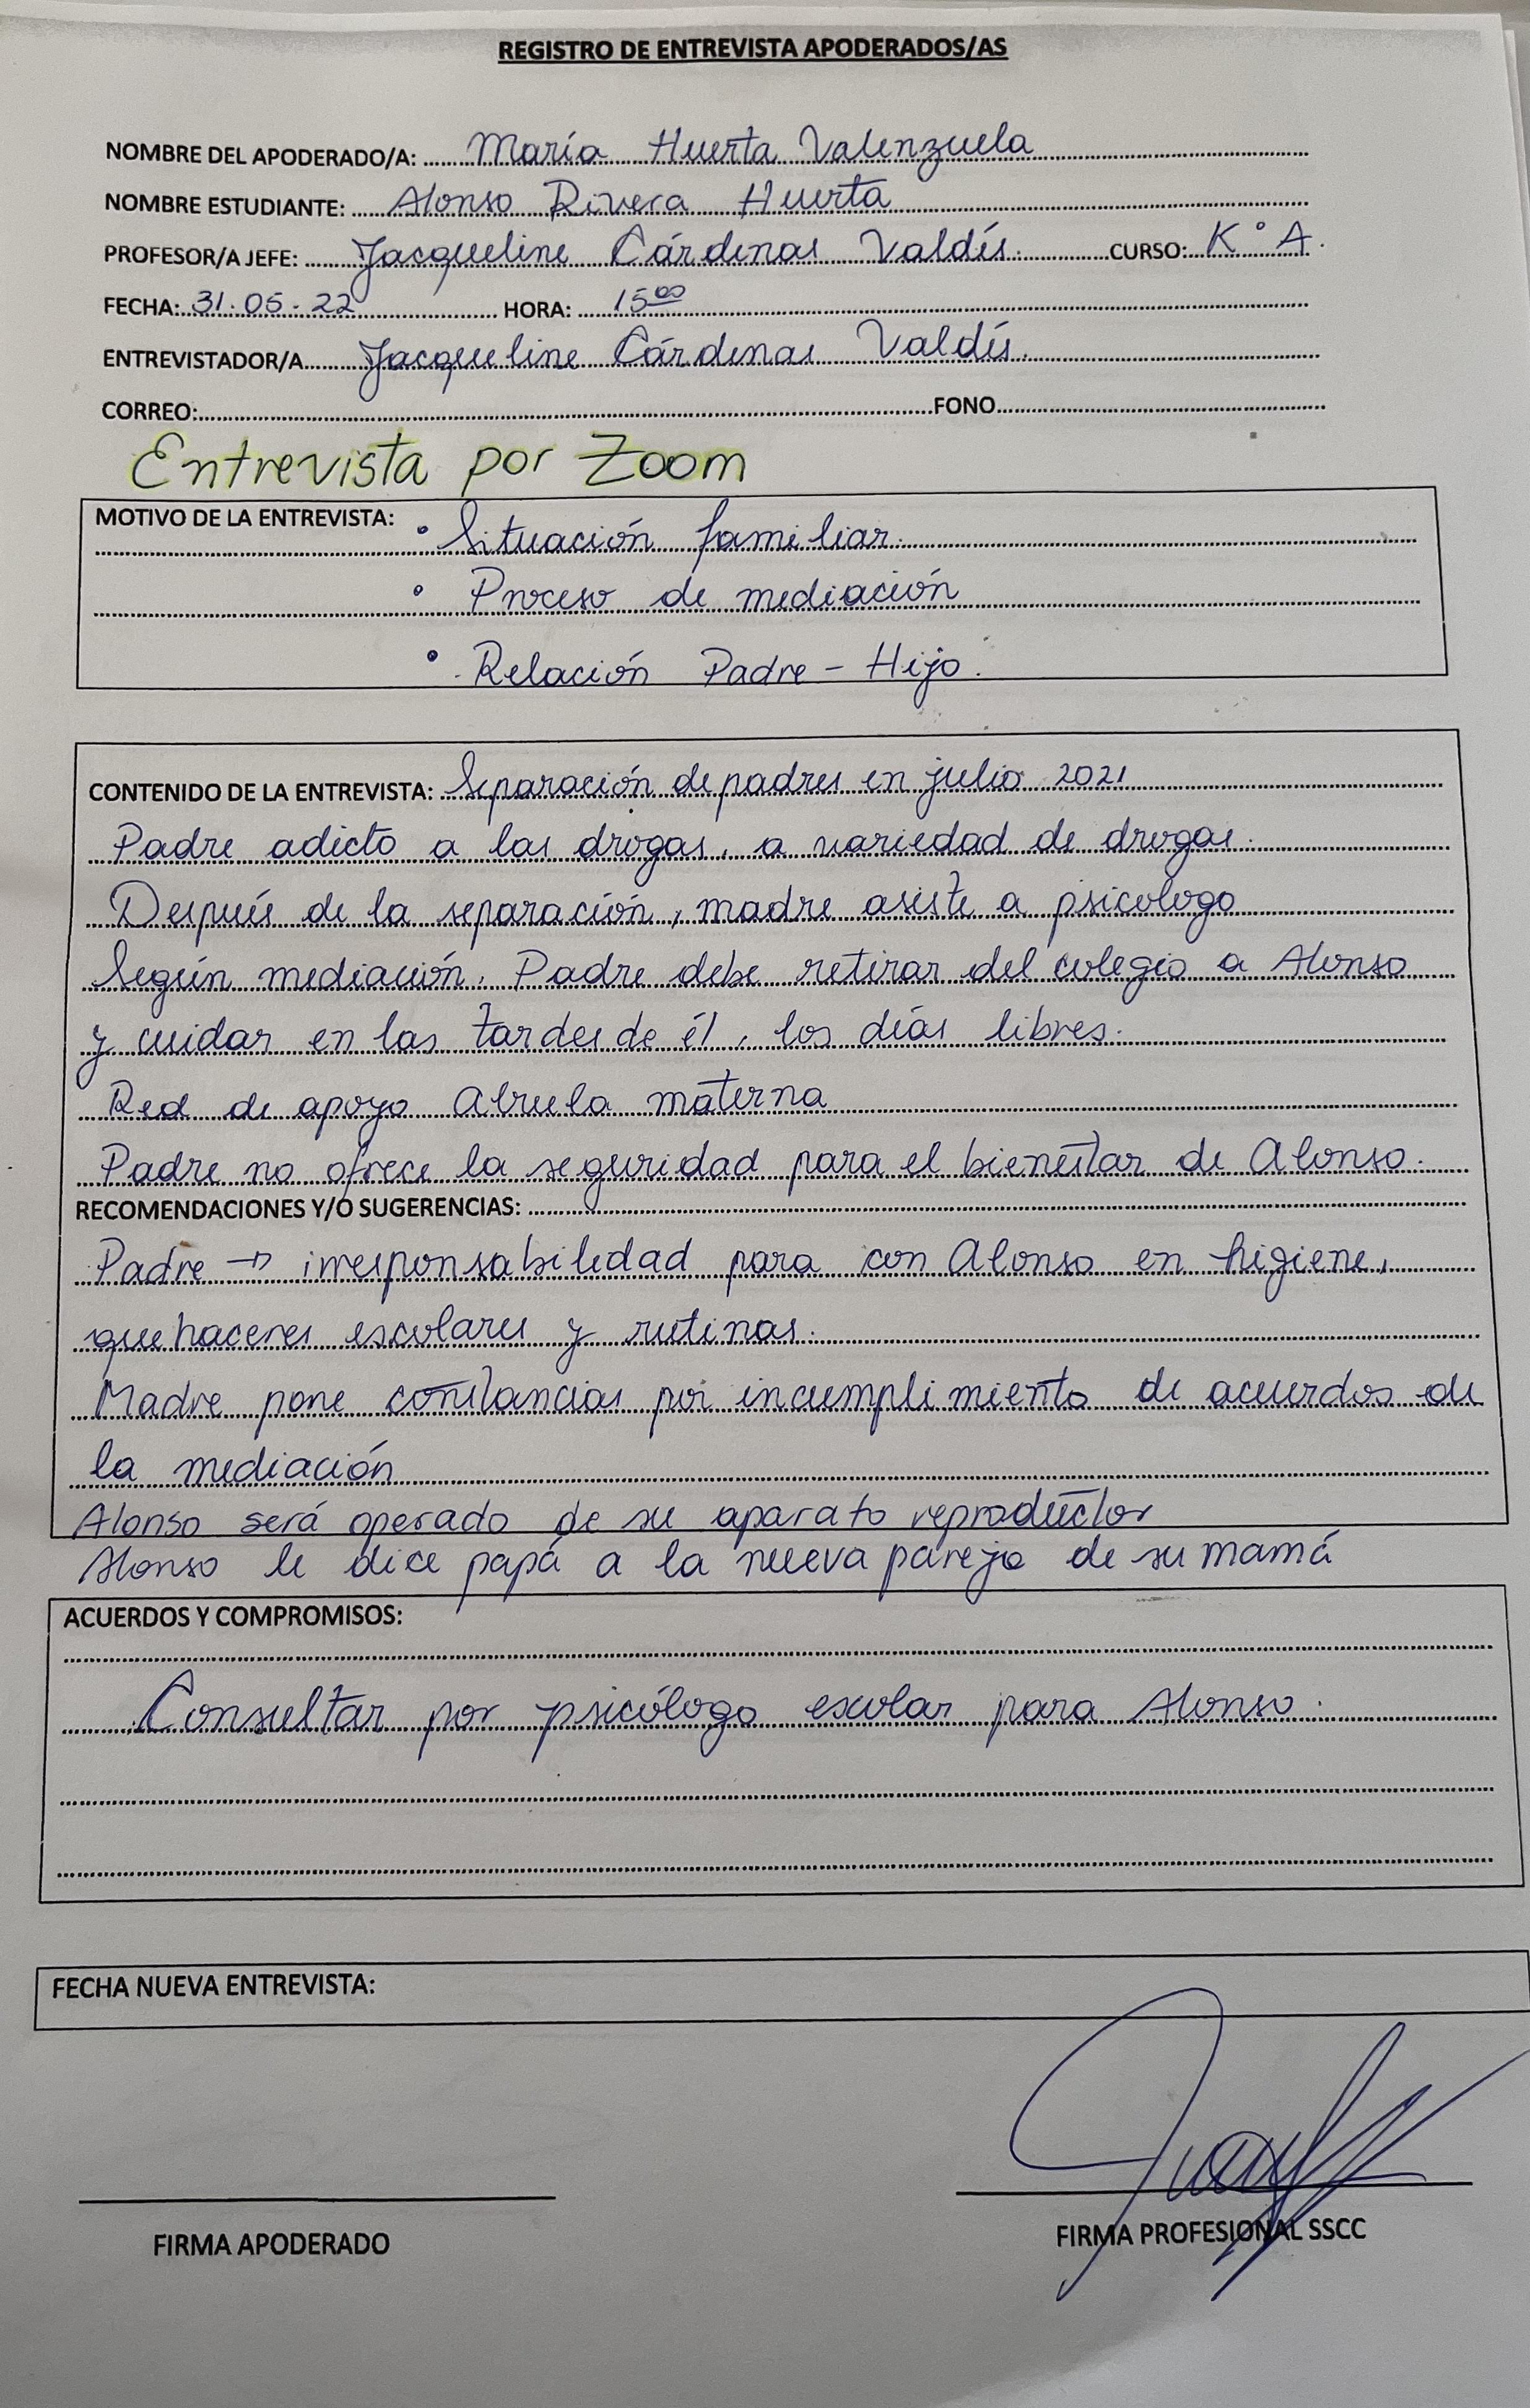 REGISTRO DE ENTREVISTA APODERADOS/AS
NOMBRE DEL APODERADO/A: María Huerta Valenzuela
NOMBRE ESTUDIANTE: Alonso Rivera Huerta
PROFESOR/A JEFE: Jacqueline Cárdenas Valdés. CURSO: K° A.
FECHA: 31.05.22 HORA: 15:00
ENTREVISTADOR/A Jacqueline Cárdenas Valdés.
CORREO: FONO
Entrevista por Zoom
MOTIVO DE LA ENTREVISTA: • Situación familiar.
• Proceso de mediación
• Relación Padre - Hijo.
CONTENIDO DE LA ENTREVISTA: Separación de padres en julio 2021
Padre adicto a las drogas, a variedad de drogas.
Después de la separación, madre asiste a psicólogo
Según mediación, Padre debe retirar del colegio a Alonso
y cuidar en las tardes de él, los días libres.
Red de apoyo Abuela materna
Padre no ofrece la seguridad para el bienestar de Alonso.
RECOMENDACIONES Y/O SUGERENCIAS:
Padre → irresponsabilidad para con Alonso en higiene,
quehaceres escolares y rutinas.
Madre pone constancias por incumplimiento de acuerdos de
la mediación
Alonso será operado de su aparato reproductor
Alonso le dice papá a la nueva pareja de su mamá
ACUERDOS Y COMPROMISOS:
Consultar por psicólogo escolar para Alonso.
FECHA NUEVA ENTREVISTA:
FIRMA APODERADO FIRMA PROFESIONAL SSCC